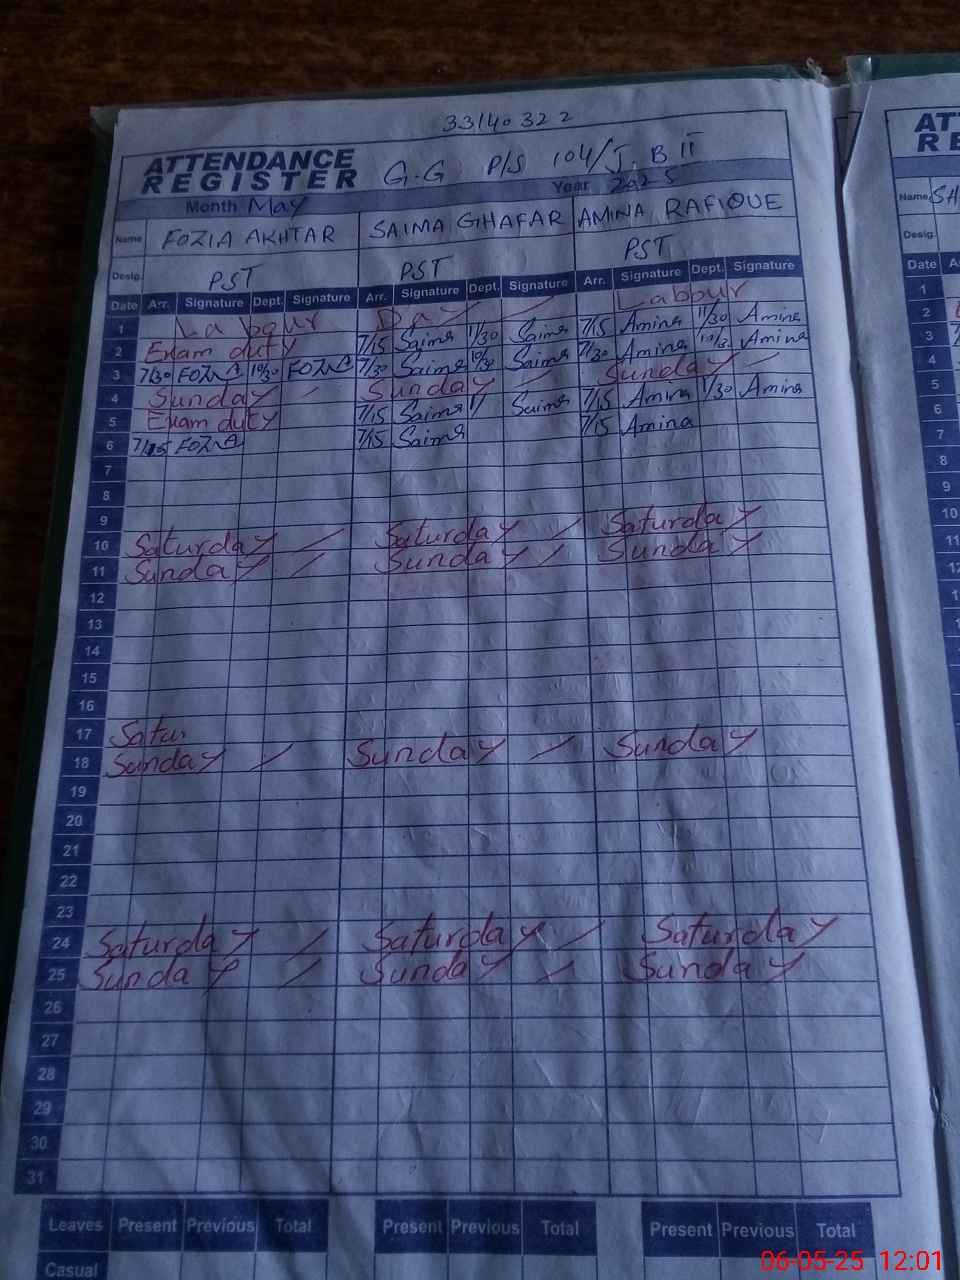 33140322
ATTENDANCE
REGISTER G.G. P/S 104/J.B II
Month May Year 2025
Name FOZIA AKHTAR SAIMA GHAFAR AMINA RAFIQUE
Desig. PST PST PST
Date Arr. Signature Dept. Signature Arr. Signature Dept. Signature Arr. Signature Dept. Signature
1 Labour Day Labour
2 Exam duty 7/15 Saima 11/30 Saima 7/15 Amina 11/30 Amina
3 7/30 FOZIA 10/30 FOZIA 7/30 Saima 10/30 Saima 7/30 Amina Amina
4 Sunday Sunday Sunday
5 Exam duty 7/15 Saima 11/ Saima 7/15 Amina 11/30 Amina
6 FOZIA 7/15 Saima 7/15 Amina
7
8
9
10 Saturday Saturday Saturday
11 Sunday Sunday Sunday
12
13
14
15
16
17 Satur
18 Sunday Sunday Sunday
19
20
21
22
23
24 Saturday Saturday Saturday
25 Sunday Sunday Sunday
26
27
28
29
30
31
Leaves Present Previous Total Present Previous Total Present Previous Total
Casual
Name
Desig.
Date
1
2
3
4
5
6
7
8
9
10
11
12
06-05-25 12:01